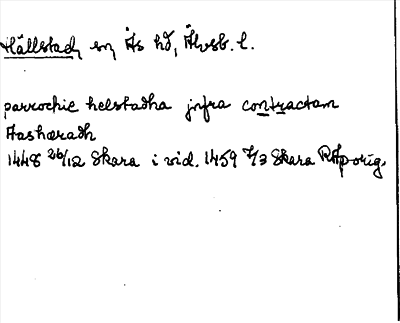 Hällstads sn Ås hd, Älvsb. l.
parrochie helstadha jnfra contractam
Aashæradh
1448 26/12 Skara i vid. 1459 7/3 Skara RAp orig.